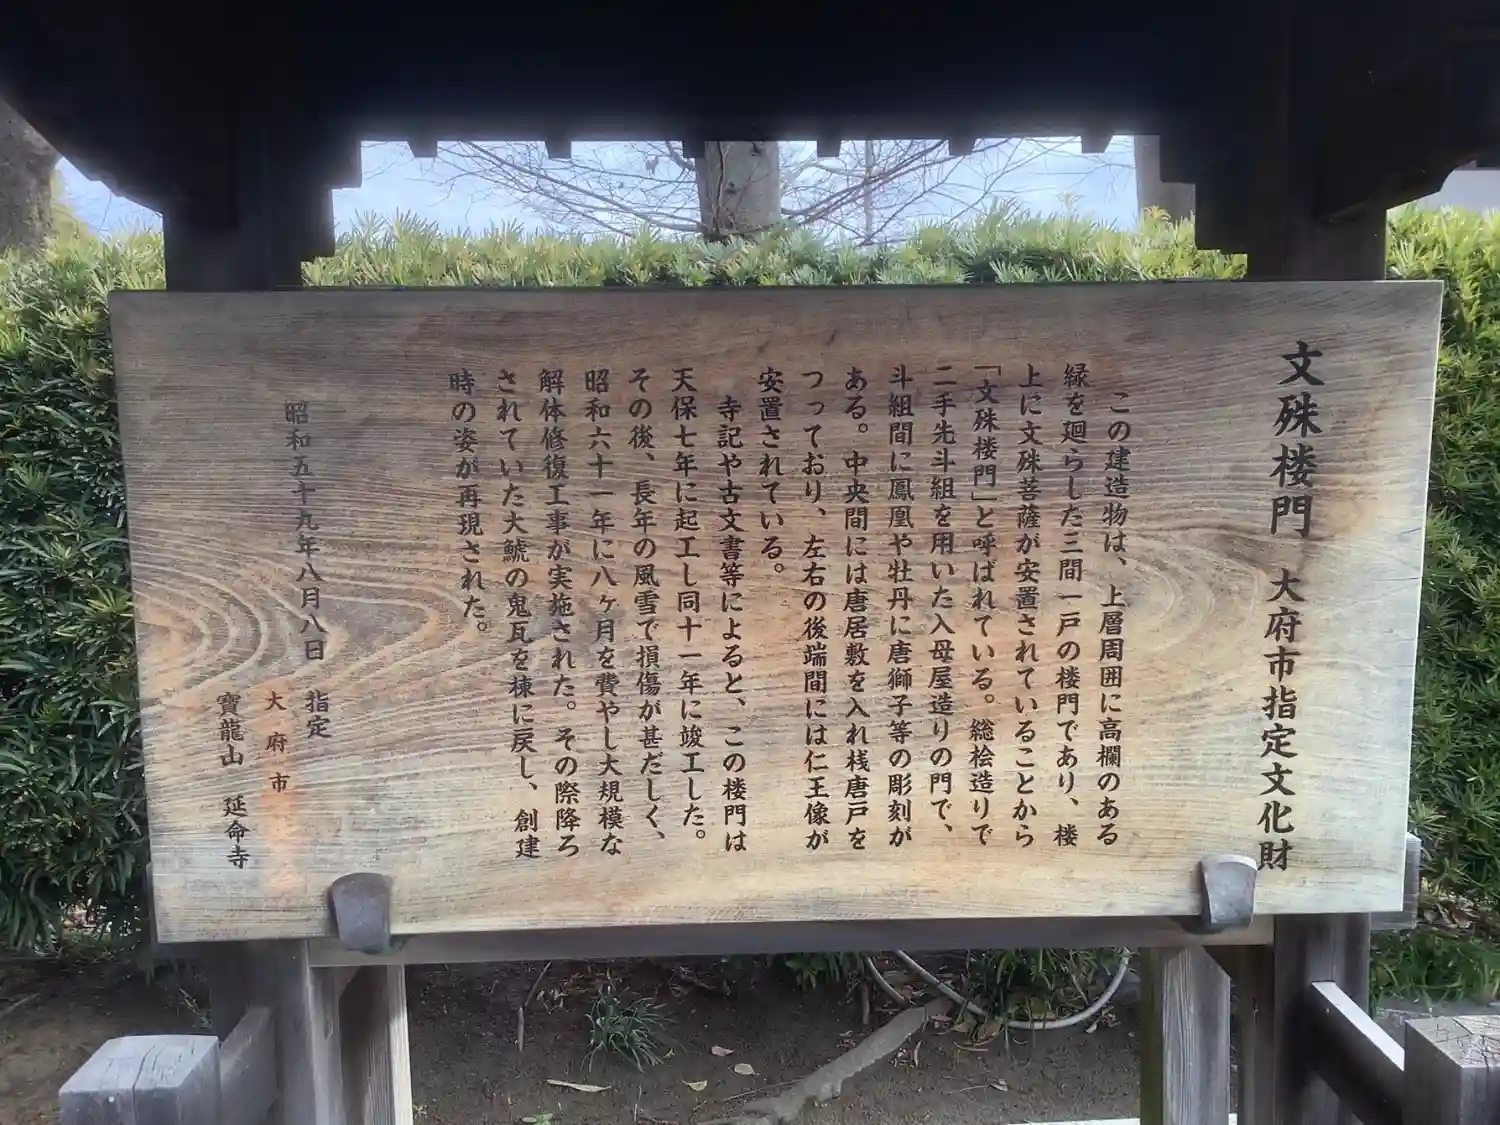 文殊楼門 大府市指定文化財
この建造物は、上層周囲に高欄のある
縁を廻らした三間一戸の楼門であり、楼
上に文殊菩薩が安置されていることから
「文殊楼門」と呼ばれている。総桧造りで
二手先斗組を用いた入母屋造りの門で、
斗組間に鳳凰や牡丹に唐獅子等の彫刻が
ある。中央間には唐居敷を入れ桟唐戸を
つっており、左右の後端間には仁王像が
安置されている。
寺記や古文書等によると、この楼門は
天保七年に起工し同十一年に竣工した。
その後、長年の風雪で損傷が甚だしく、
昭和六十一年に八ヶ月を費やし大規模な
解体修復工事が実施された。その際降ろ
されていた大鯱の鬼瓦を棟に戻し、創建
時の姿が再現された。
昭和五十九年八月八日 指定
大府市
寶龍山 延命寺